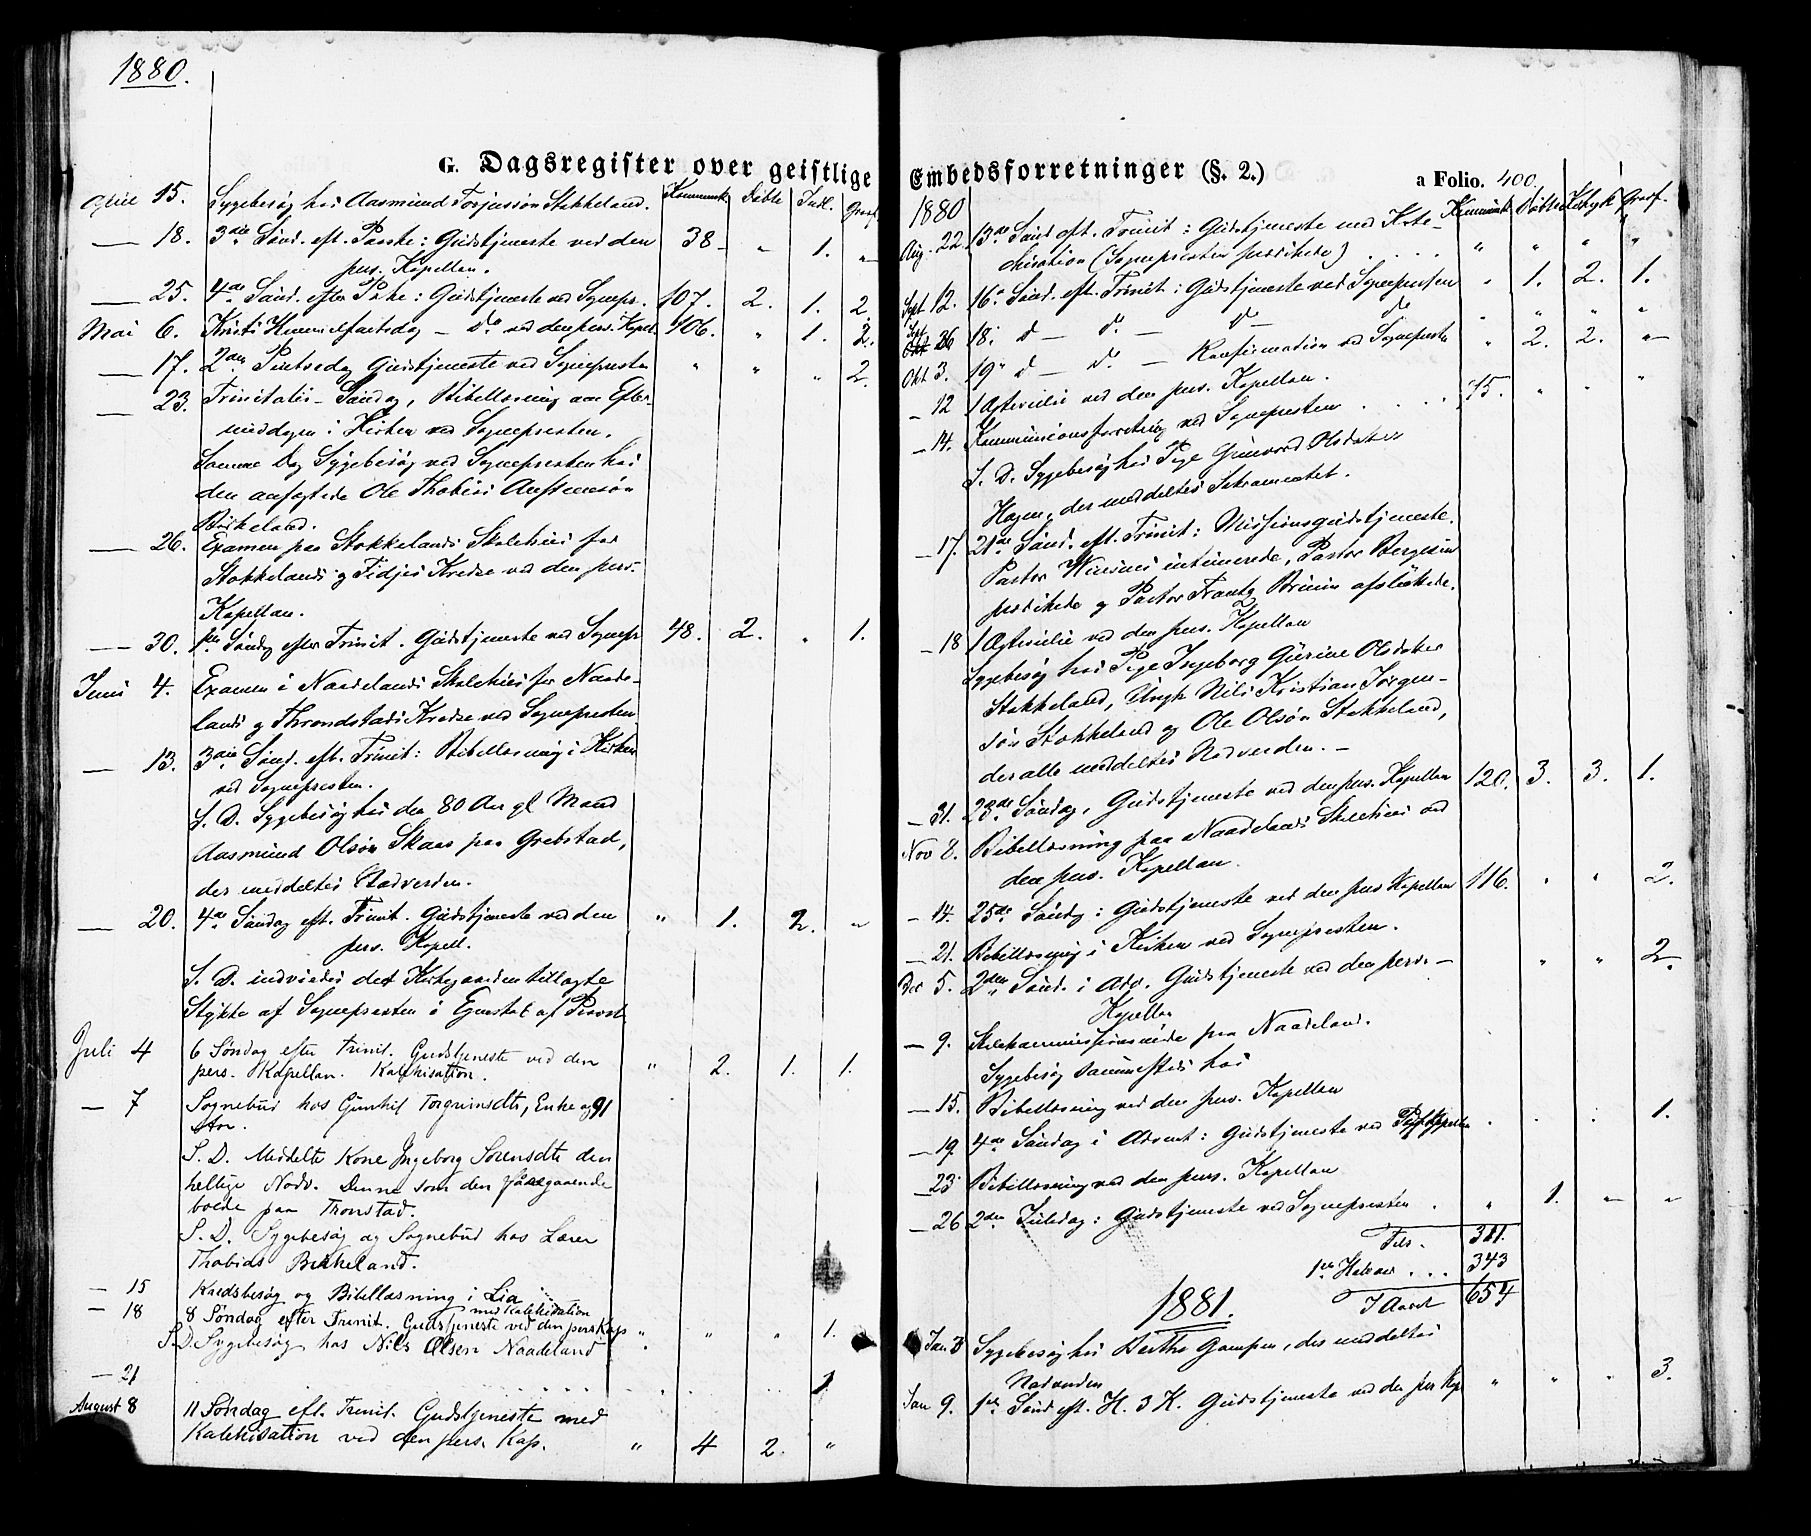 1880.
G. Dagsregister over geistlige
Kommunik. Døbte Intl. Graaf.
April 15. Sygebesøg hos Aasmund Torjussøn Stokkeland.
— 18. 3die Sønd. eft. Paaske: Gudstjeneste ved den 38 " 1. "
pers. Kapellan.
— 25. 4de Sønd. efter Paaske: Gudstjeneste ved Sognepr. 107. 2. 1. 2.
Mai 6. Kristi Himmelfartsdag — Do ved den pers. Kapel. 106. " 1. 2.
— 17. 2den Pintsedag Gudstjeneste ved Sognepresten " " " 2.
— 23. Trinitatis-Søndag, Bibellæsning om Efter-
middagen i Kirken ved Sognepresten.
Samme Dag Sygebesøg ved Sognepresten hos
den anfægtede Ole Thobias Austensøn
Birkeland.
— 26. Examen paa Stokkelands Skolehus for
Stokkelands og Fidjes Kredse ved den pers.
Kapellan.
— 30. 1ste Søndag efter Trinit. Gudstjeneste ved Sognepr. 48. 2. " 1.
Juni 4. Examen i Naadelands Skolehus for Naade-
lands og Throndstads Kredse ved Sognepresten
— 13. 3die Sønd. eft. Trinit: Bibellæsning i Kirken
ved Sognepresten.
S. D. Sygebesøg hos den 80 Aar gl. Mand
Aasmund Olsøn Skaar paa Grebstad,
der meddeltes Nadverden.
— 20. 4de Søndag eft. Trinit. Gudstjeneste ved den " 1. 2. "
pers. Kapell.
S. D. indviedes det Kirkegaarden tillagte
Stykke af Sognepresten i Egenskab af Provst.
Juli 4 6 Søndag efter Trinit. Gudstjeneste ved den " 2. 1. 1.
pers. Kapellan. Katekisation.
— 7 Sognebud hos Gunhil Torgrimsdtr, Enke og 91
Aar.
S. D. Meddelte Kone Ingeborg Sørensdtr den
hellige Nadv. Denne som den foregaaende
boede paa Tronstad.
S. D. Sygebesøg og Sognebud hos Lærer
Thobias Birkeland.
— 15 Kredsbesøg og Bibellæsning i Lia
— 18 8 Søndag efter Trinit. Gudstjeneste ved den pers Kap " " " 1.
med Katekisation
S.D. Sygebesøg hos Nils Olsen Naadeland
— 21 1
August 8 11 Søndag eft. Trinit. Gudstjeneste med
Katekisation ved den pers. Kap. " 4 2. "
Embedsforretninger (§. 2.) a Folio. 400.
1880 Kommunik. Døbte Graaf.
Aug. 22. 13de Sønd. eft. Trinit: Gudstjeneste med Kate- " " " "
kisation (Sognepresten prædikede) . . . .
Sept 12. 16de Sønd. eft. Trinit: Gudstjeneste ved Sognepresten " 1. 2. 1.
Sept 26 18. d — do — do do " " " "
Okt 3. 19de d — do — Konfirmation ved Sognepresten " 2. 2. "
— 12 1 Altervielse ved den pers. Kapellan.
— 14. Kommunionsforretning ved Sognepresten . . . . 15. " " "
S. D. Sygebesøg hos Pige Gunvord Olsdatter
Hagen, der meddeltes Sakramentet.
— 17. 21de Sønd. eft. Trinit: Missionsgudstjeneste.
Pastor Winsnes intimerede, Pastor Bergesen
prædikede og Pastor Frantz Bruun afsluttede.
— 18 1 ved den pers. Kapellan
Sygebesøg hos Pige Ingeborg Gurine Olsdatter
Stokkeland, Nils Kristian Jørgen-
søn Stokkeland og Ole Olsøn Stokkeland,
der alle meddeltes Nadverden. —
— 31. 23de Søndag, Gudstjeneste ved den pers. Kapellan 120. 3. 3. 1.
Nov 8. Bibellæsning paa Naadelands Skolehus ved
den pers. Kapellan.
— 14. 25de Søndag: Gudstjeneste ved den pers Kapellan 116. " " 2.
— 21. Bibellæsning i Kirken ved Sognepresten.
Dec 5. 2den Sønd. i Adv. Gudstjeneste ved den pers. — " " 2.
Kapellan
— 9. Skolekommissionsmøde paa Naadeland.
Sygebesøg sammesteds hos
— 15. Bibellæsning ved den pers. Kapellan
— 19. 4de Søndag i Advent: Gudstjeneste ved Kapellan . . . 1.
— 23 Bibellæsning ved den pers. Kapellan
— 26 2den Juledag: Gudstjeneste ved Sognepresten . " 1. " "
Tils. 311.
1ste Halvaar . . . 343
I Aaret 654
1881.
Jan 3 Sygebesøg hos Berthe Gampen, der meddeltes
Nadverden
Jan 9. 1ste Sønd eft. H. 3 K. Gudstjeneste ved den pers Kap " " " 3.